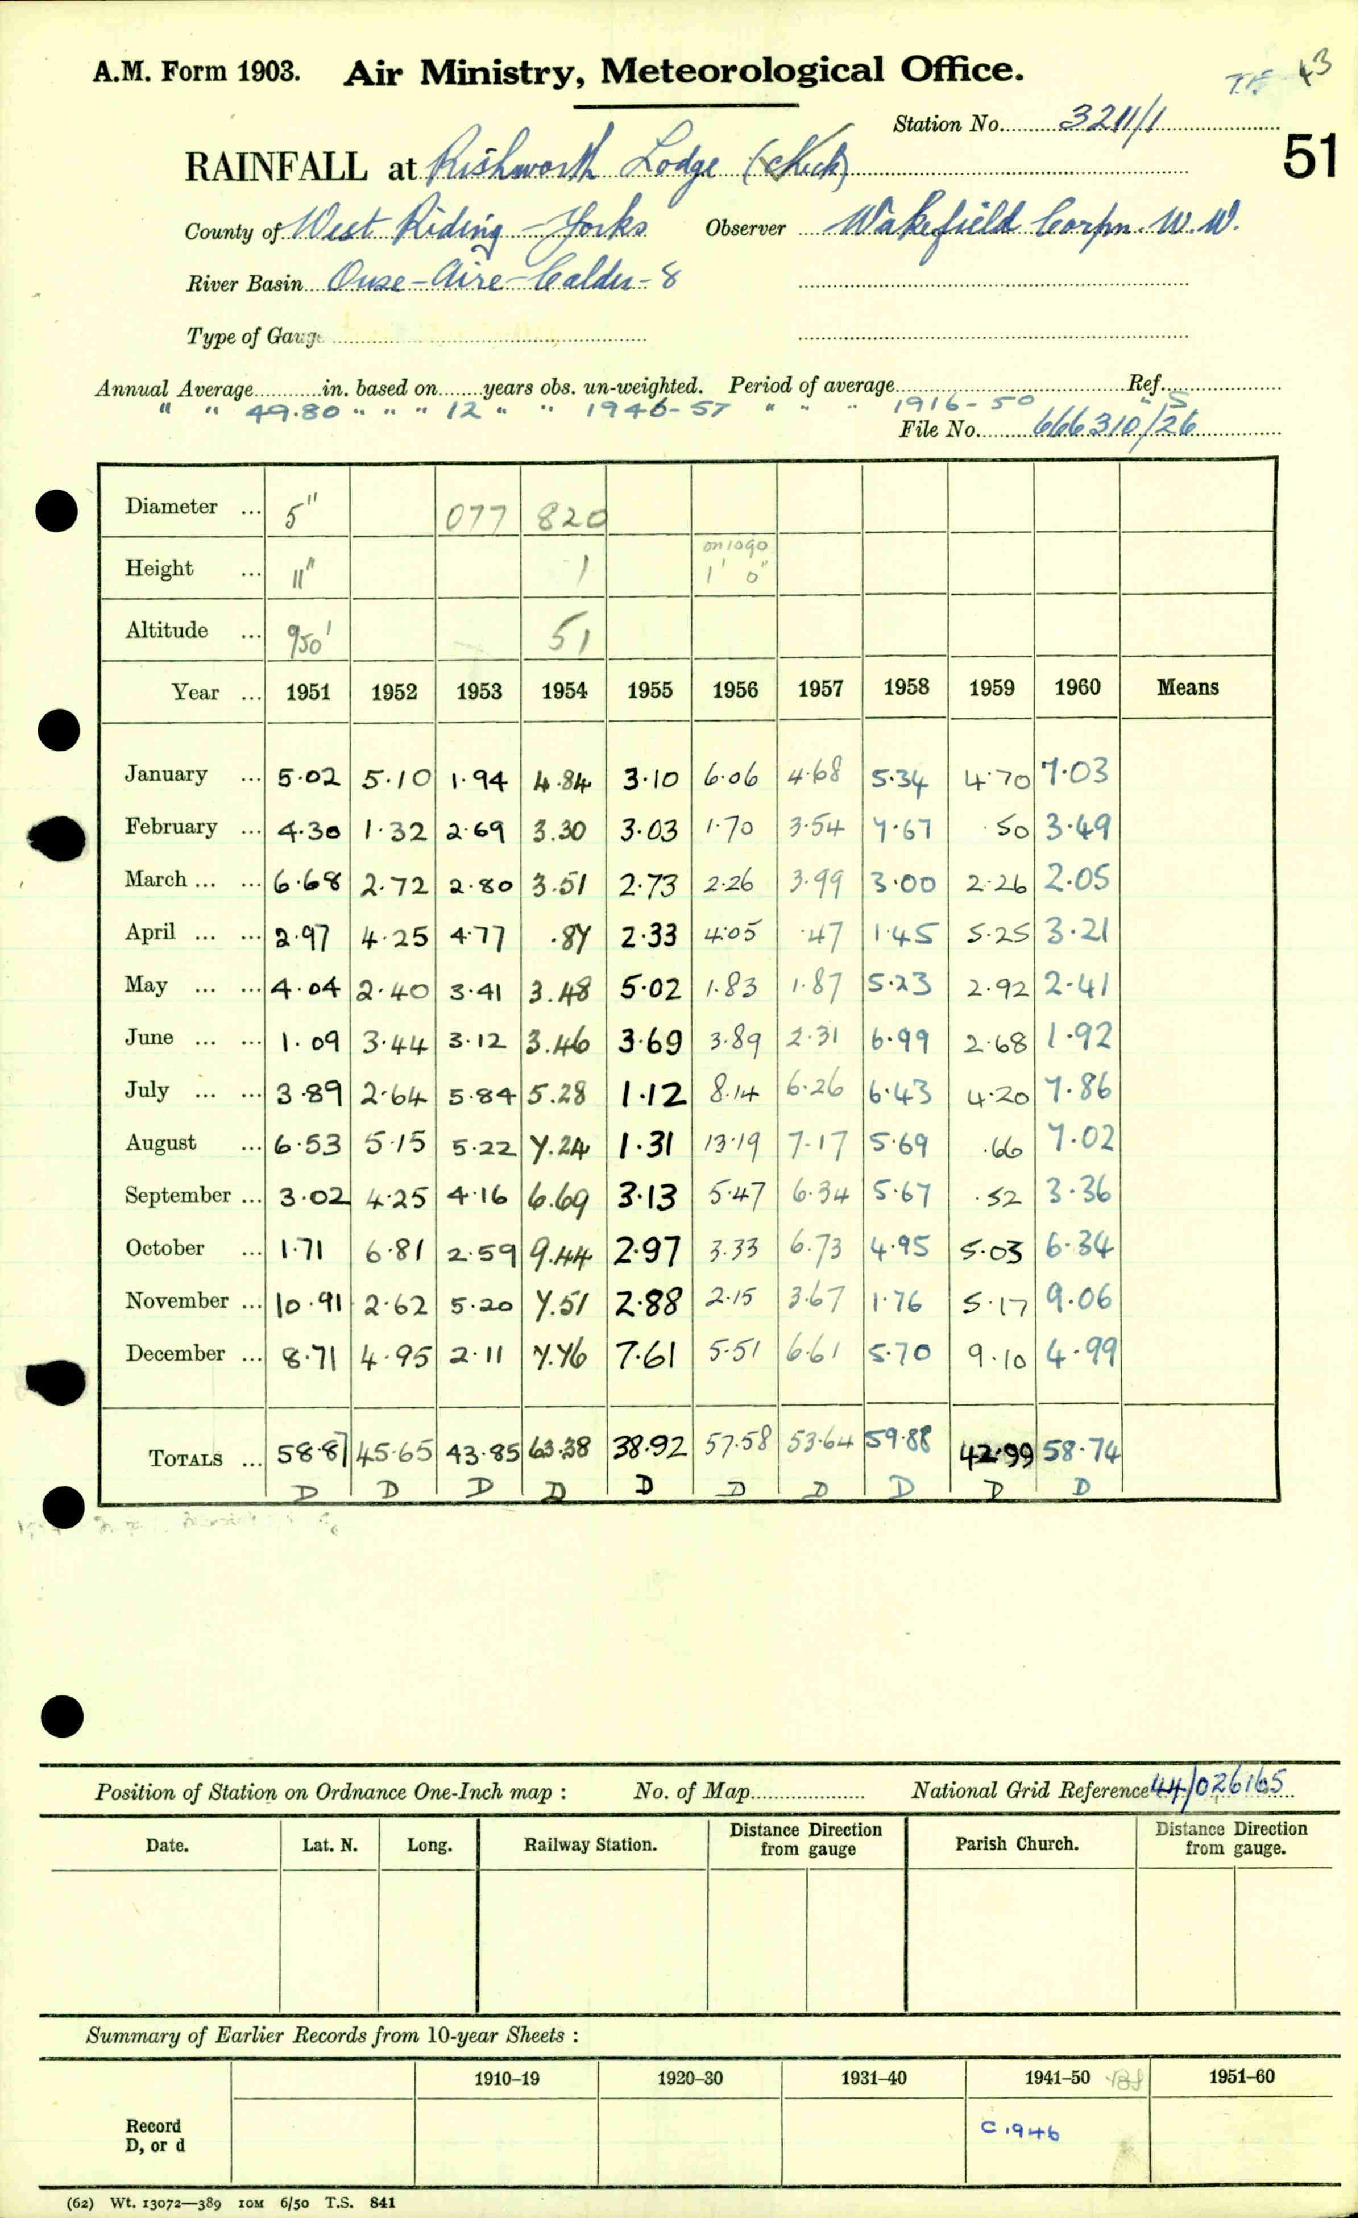 A.M. Form 1903. Air Ministry, Meteorological Office. 43
Station No. 3211/1
51
RAINFALL at Rishworth Lodge (Check)
County of West Riding - Yorks Observer Wakefield Corpn. W.W.
River Basin Ouse - Aire - Calder - 8
Type of Gauge
Annual Average in. based on years obs. un-weighted. Period of average Ref.
" " 49.80 " " " 12 " " 1946-57 " " " 1916-50 " 15
File No. 666310/26
Diameter ... 5" 077 820
Height ... 11" 1 on 1090 1' 0"
Altitude ... 950' 51
Year ... 1951 1952 1953 1954 1955 1956 1957 1958 1959 1960 Means
January ... 5.02 5.10 1.94 4.84 3.10 6.06 4.68 5.34 4.70 7.03
February ... 4.30 1.32 2.69 3.30 3.03 1.70 3.54 7.67 .50 3.49
March ... ... 6.68 2.72 2.80 3.51 2.73 2.26 3.99 3.00 2.26 2.05
April ... ... 2.97 4.25 4.77 .87 2.33 4.05 .47 1.45 5.25 3.21
May ... ... 4.04 2.40 3.41 3.48 5.02 1.83 1.87 5.23 2.92 2.41
June ... ... 1.09 3.44 3.12 3.46 3.69 3.89 2.31 6.99 2.68 1.92
July ... ... 3.89 2.64 5.84 5.28 1.12 8.14 6.26 6.43 4.20 7.86
August ... 6.53 5.15 5.22 7.24 1.31 13.19 7.17 5.69 .66 7.02
September ... 3.02 4.25 4.16 6.69 3.13 5.47 6.34 5.67 .52 3.36
October ... 1.71 6.81 2.59 9.44 2.97 3.33 6.73 4.95 5.03 6.34
November ... 10.91 2.62 5.20 7.51 2.88 2.15 3.67 1.76 5.17 9.06
December ... 8.71 4.95 2.11 7.46 7.61 5.51 6.61 5.70 9.10 4.99
TOTALS ... 58.87 45.65 43.85 63.38 38.92 57.58 53.64 59.88 42.99 58.74
D D D D D D D D D D
Position of Station on Ordnance One-Inch map : No. of Map National Grid Reference 44/026165
Date. Lat. N. Long. Railway Station. Distance Direction from gauge Parish Church. Distance Direction from gauge.
Summary of Earlier Records from 10-year Sheets :
1910-19 1920-30 1931-40 1941-50 1951-60
Record D, or d C 1946
(62) Wt. 13072—389 10M 6/50 T.S. 841